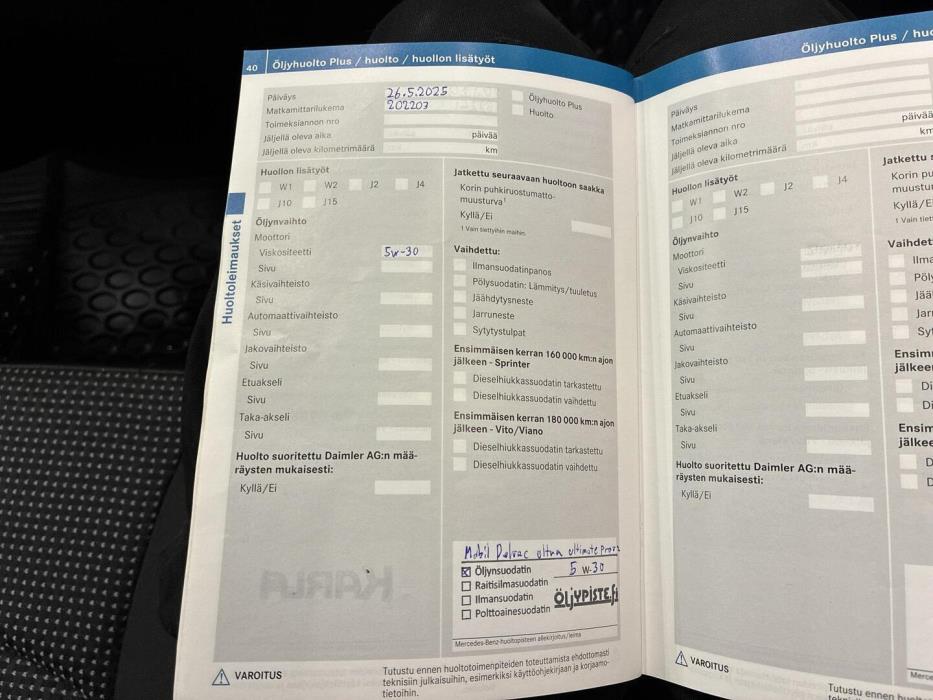 40 Öljyhuolto Plus / huolto / huollon lisätyöt
Päiväys 26.5.2025
Matkamittarilukema 202207
Toimeksiannon nro
Jäljellä oleva aika päivää
Jäljellä oleva kilometrimäärä km
Öljyhuolto Plus
Huolto
Huollon lisätyöt
W1 W2 J2 J4
J10 J15
Öljynvaihto
Moottori
Viskositeetti 5w-30
Sivu
Käsivaihteisto
Sivu
Automaattivaihteisto
Sivu
Jakovaihteisto
Sivu
Etuakseli
Sivu
Taka-akseli
Sivu
Huolto suoritettu Daimler AG:n mää-
räysten mukaisesti:
Kyllä/Ei
Jatkettu seuraavaan huoltoon saakka
Korin puhkiruostumatto-
muusturva¹
Kyllä/Ei
¹ Vain tiettyihin maihin.
Vaihdettu:
Ilmansuodatinpanos
Pölysuodatin: Lämmitys/tuuletus
Jäähdytysneste
Jarruneste
Sytytystulpat
Ensimmäisen kerran 160 000 km:n ajon
jälkeen - Sprinter
Dieselhiukkassuodatin tarkastettu
Dieselhiukkassuodatin vaihdettu
Ensimmäisen kerran 180 000 km:n ajon
jälkeen - Vito/Viano
Dieselhiukkassuodatin tarkastettu
Dieselhiukkassuodatin vaihdettu
Mobil Delvac ultra ultimate
5 w-30
Öljynsuodatin
Raitisilmasuodatin
Ilmansuodatin
Polttoainesuodatin
ÖLJYPISTE.fi
Mercedes-Benz-huoltopisteen allekirjoitus/leima
Huoltoleimaukset
VAROITUS
Tutustu ennen huoltotoimenpiteiden toteuttamista ehdottomasti
teknisiin julkaisuihin, esimerkiksi käyttöohjekirjaan ja korjaamo-
tietoihin.
Öljyhuolto Plus /
Päiväys
Matkamittarilukema
Toimeksiannon nro
Jäljellä oleva aika päivää
Jäljellä oleva kilometrimäärä km
Huollon lisätyöt
W1 W2 J2 J4
J10 J15
Öljynvaihto
Moottori
Viskositeetti
Sivu
Käsivaihteisto
Sivu
Automaattivaihteisto
Sivu
Jakovaihteisto
Sivu
Etuakseli
Sivu
Taka-akseli
Sivu
Huolto suoritettu Daimler AG:n mää-
räysten mukaisesti:
Kyllä/Ei
Jatkettu
Korin
¹ Vain
VAROITUS
Tutustu ennen